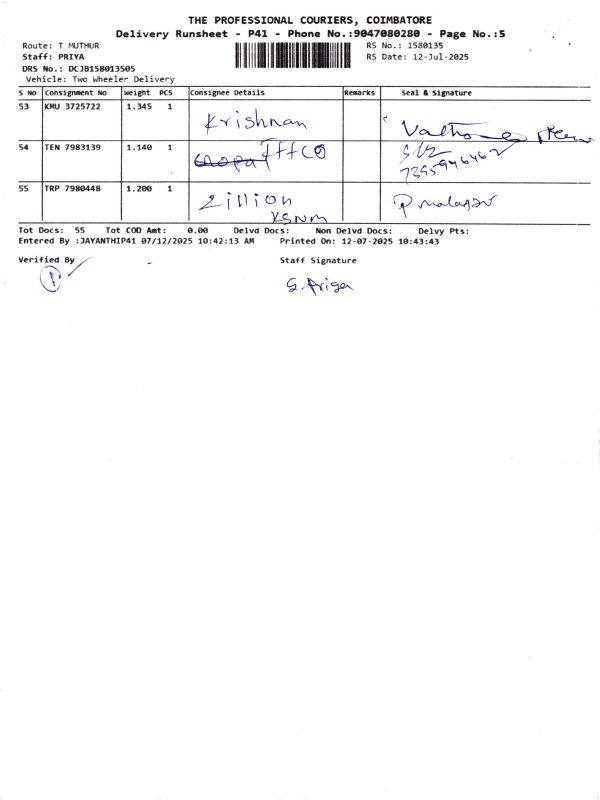 THE PROFESSIONAL COURIERS, COIMBATORE
Delivery Runsheet - P41 - Phone No.:9047080280 - Page No.:5
Route: T MUTHUR RS No.: 1580135
Staff: PRIYA RS Date: 12-Jul-2025
DRS No.: DCJB158013505
Vehicle: Two Wheeler Delivery
S No Consignment No Weight PCS Consignee Details Remarks Seal & Signature
53 KMU 3725722 1.345 1 Krishnan
54 TEN 7983139 1.140 1
7395946462
55 TRP 7980448 1.200 1 Zillion
KSNM
Tot Docs: 55 Tot COD Amt: 0.00 Delvd Docs: Non Delvd Docs: Delvy Pts:
Entered By :JAYANTHIP41 07/12/2025 10:42:13 AM Printed On: 12-07-2025 10:43:43
Verified By Staff Signature
S. Priya